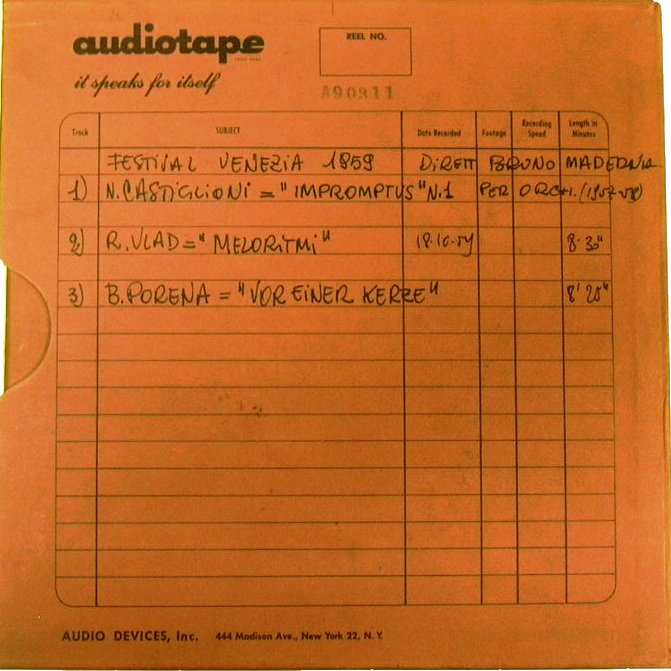 audiotape
it speaks for itself
REEL NO.
A90811
Track SUBJECT Date Recorded Footage Recording Speed Length in Minutes
FESTIVAL VENEZIA 1859 DIRETT BRUNO MADERNA
1) N. CASTIGLIONI = "IMPROMPTUS" N.1 PER ORCH. (1957-58)
2) R. VLAD = "MELORITMI" 18.10.59 8'30"
3) B. PORENA = "VOR EINER KERZE" 8'25"
AUDIO DEVICES, Inc. 444 Madison Ave., New York 22, N. Y.